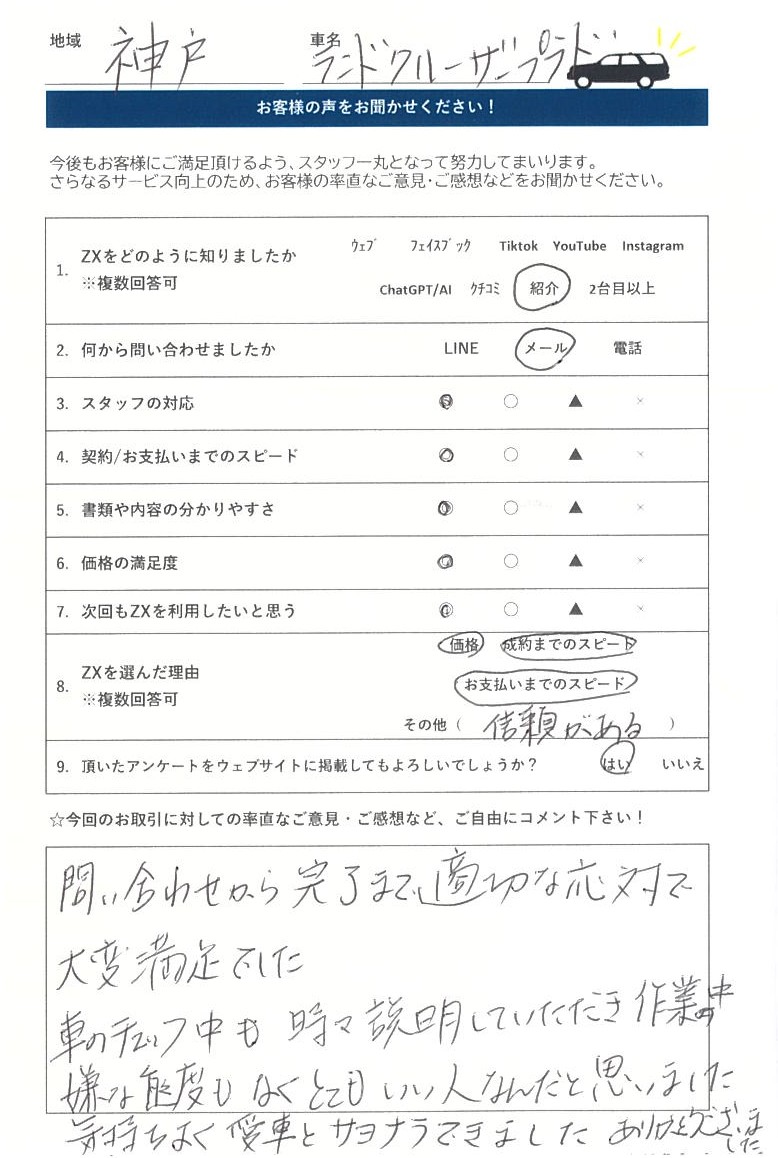 地域 神戸 車名 ランドクルーザープラド
お客様の声をお聞かせください！
今後もお客様にご満足頂けるよう、スタッフ一丸となって努力してまいります。
さらなるサービス向上のため、お客様の率直なご意見・ご感想などをお聞かせください。
1. ZXをどのように知りましたか
※複数回答可
ウェブ フェイスブック Tiktok YouTube Instagram
ChatGPT/AI クチコミ 紹介 2台目以上
2. 何から問い合わせましたか LINE メール 電話
3. スタッフの対応 ◎ ○ ▲ ×
4. 契約/お支払いまでのスピード ◎ ○ ▲ ×
5. 書類や内容の分かりやすさ ◎ ○ ▲ ×
6. 価格の満足度 ◎ ○ ▲ ×
7. 次回もZXを利用したいと思う ◎ ○ ▲ ×
8. ZXを選んだ理由
※複数回答可
価格 成約までのスピード
お支払いまでのスピード
その他（ 信頼がある ）
9. 頂いたアンケートをウェブサイトに掲載してもよろしいでしょうか？ はい いいえ
☆今回のお取引に対しての率直なご意見・ご感想など、ご自由にコメント下さい！
問い合わせから完了まで、適切な応対で
大変満足でした
車のチェック中も 時々説明していただき 作業の中
嫌な態度もなくとてもいい人なんだと思いました
気持ちよく愛車とサヨナラできました ありがとうございました